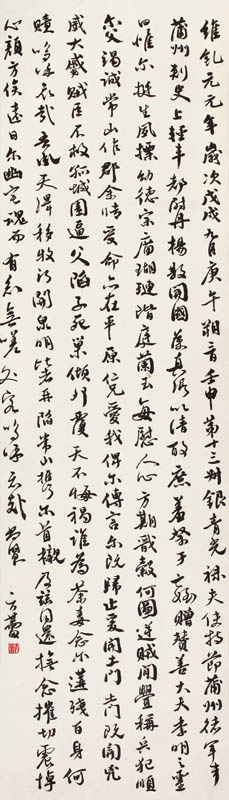 維乾元元年歲次戊戌九月庚午朔三日壬申第十三叔銀青光祿夫使持節蒲州諸軍事
蒲州刺史上輕車都尉丹楊縣開國侯真卿以清酌庶羞祭于亡姪贈贊善大夫季明之靈
曰惟爾挺生夙標幼德宗廟瑚璉階庭蘭玉每慰人心方期戩穀何圖逆賊閒釁稱兵犯順
爾父竭誠常山作郡余時受命亦在平原仁兄愛我俾爾傳言爾既歸止爰開土門土門既開兇
威大蹙賊臣不救孤城圍逼父陷子死巢傾卵覆天不悔禍誰為荼毒念爾遘殘百身何
贖嗚呼哀哉吾承天澤移牧河關泉明比者再陷常山攜爾首櫬及茲同還撫念摧切震悼
心顏方俟遠日爾幽宅魂而有知無嗟久客嗚呼哀哉尚饗